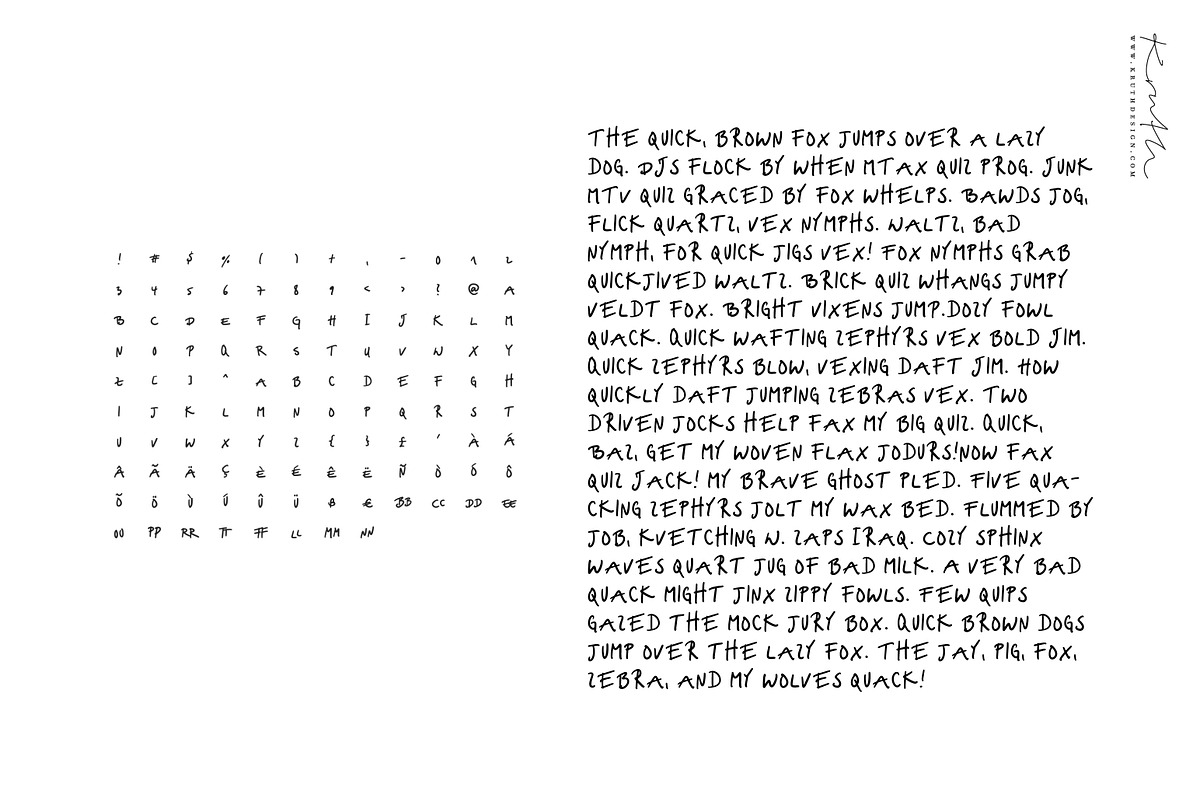 ! # $ % ( ) + , - 0 1 2
3 4 5 6 7 8 9 < > ? @ A
B C D E F G H I J K L M
N O P Q R S T U V W X Y
Z [ ] ^ A B C D E F G H
I J K L M N O P Q R S T
U V W X Y Z { } £ ' À Á
Â Ã Ä Ç È É Ê Ë Ñ Ò Ó Ô
Õ Ö Ù Ú Û Ü ß € BB CC DD EE
OO PP RR TT FF LL MM NN
THE QUICK, BROWN FOX JUMPS OVER A LAZY
DOG. DJS FLOCK BY WHEN MTAX QUIZ PROG. JUNK
MTV QUIZ GRACED BY FOX WHELPS. BAWDS JOG,
FLICK QUARTZ, VEX NYMPHS. WALTZ, BAD
NYMPH, FOR QUICK JIGS VEX! FOX NYMPHS GRAB
QUICKJIVED WALTZ. BRICK QUIZ WHANGS JUMPY
VELDT FOX. BRIGHT VIXENS JUMP.DOZY FOWL
QUACK. QUICK WAFTING ZEPHYRS VEX BOLD JIM.
QUICK ZEPHYRS BLOW, VEXING DAFT JIM. HOW
QUICKLY DAFT JUMPING ZEBRAS VEX. TWO
DRIVEN JOCKS HELP FAX MY BIG QUIZ. QUICK,
BAZ, GET MY WOVEN FLAX JODURS!NOW FAX
QUIZ JACK! MY BRAVE GHOST PLED. FIVE QUA-
CKING ZEPHYRS JOLT MY WAX BED. FLUMMED BY
JOB, KVETCHING W. ZAPS IRAQ. COZY SPHINX
WAVES QUART JUG OF BAD MILK. A VERY BAD
QUACK MIGHT JINX ZIPPY FOWLS. FEW QUIPS
GAZED THE MOCK JURY BOX. QUICK BROWN DOGS
JUMP OVER THE LAZY FOX. THE JAY, PIG, FOX,
ZEBRA, AND MY WOLVES QUACK!
Kruth
WWW.KRUTHDESIGN.COM